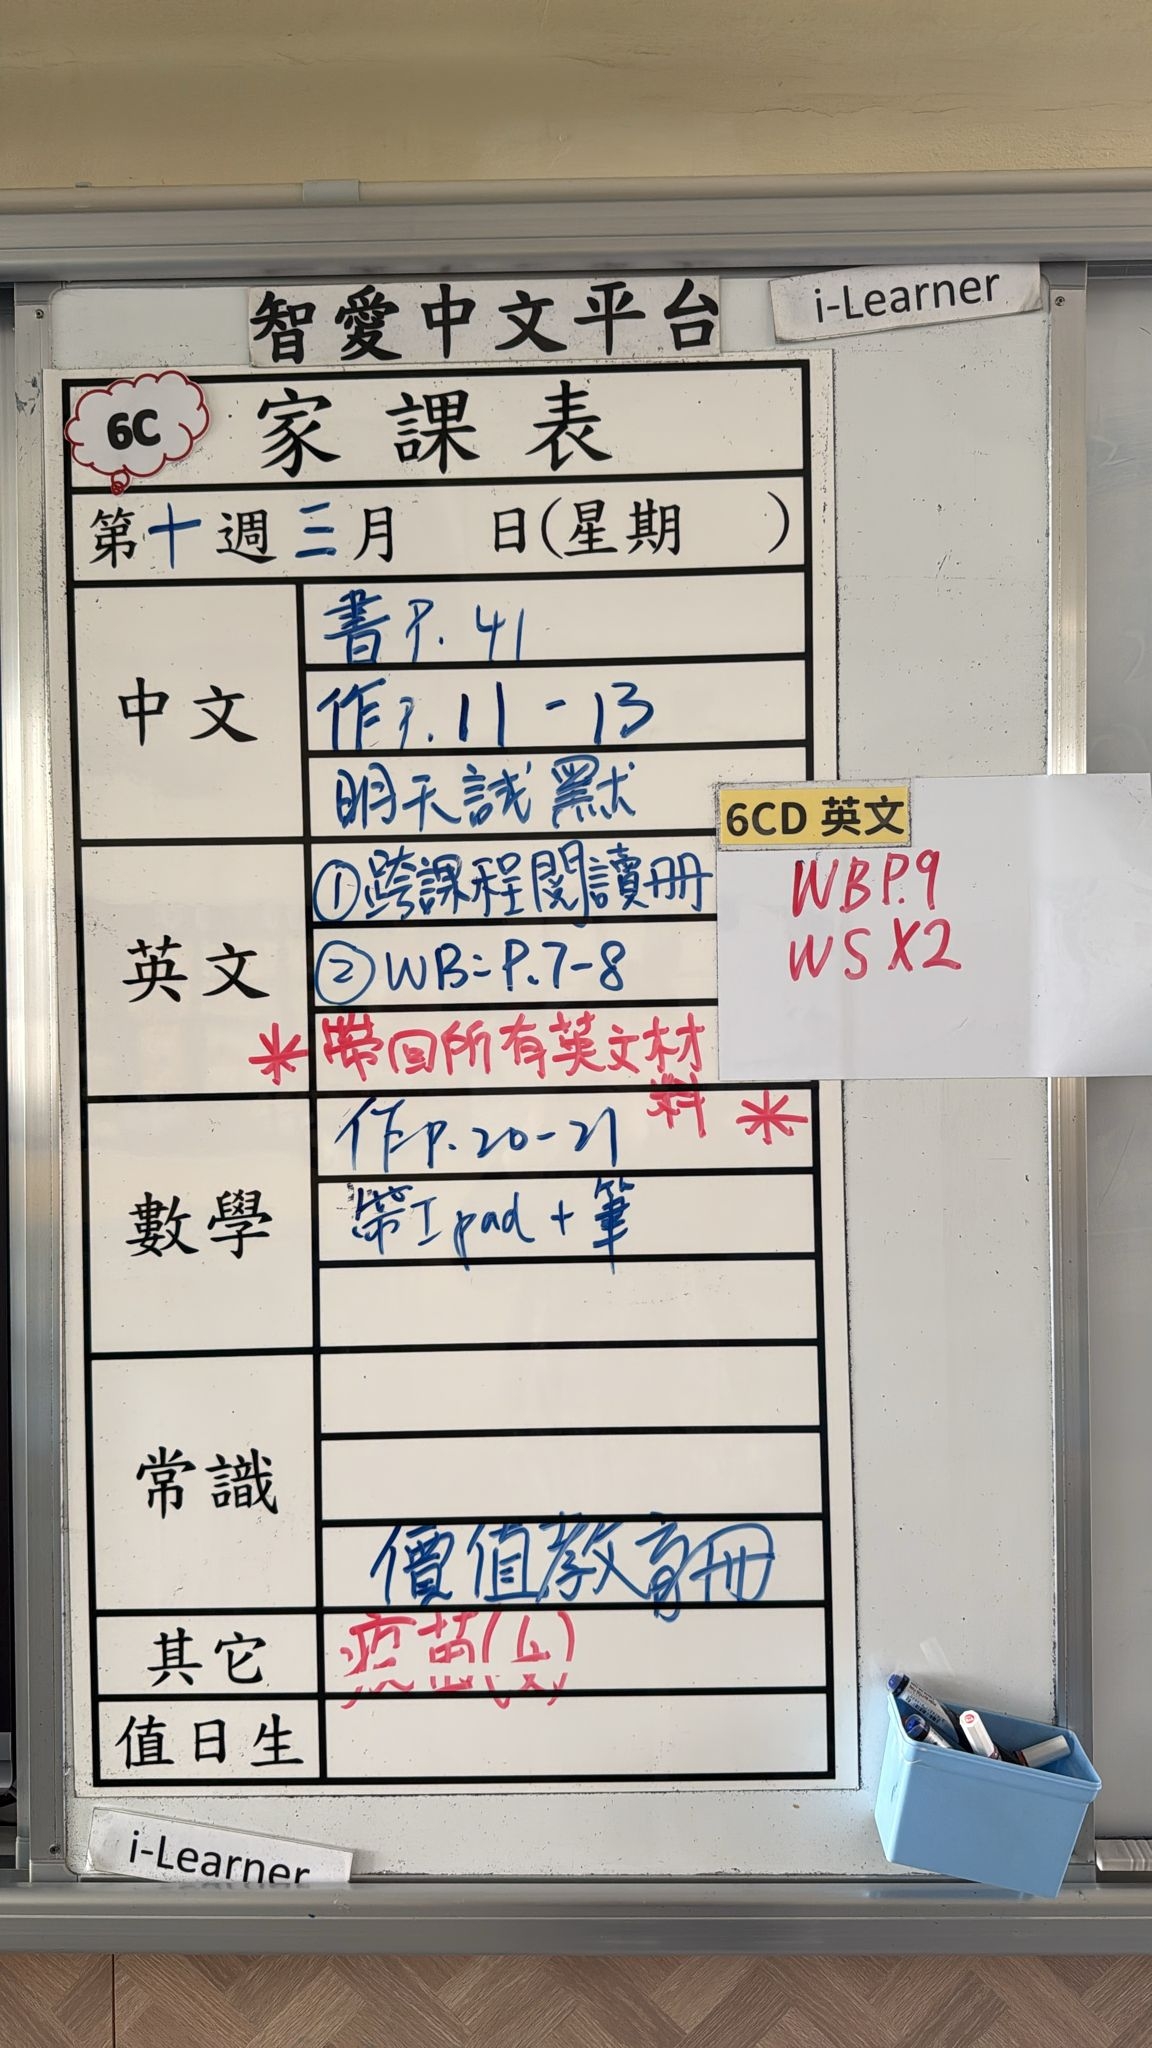 智愛中文平台
i-Learner
6C
家課表
第十週三月 日(星期 )
中文
書P. 41
作P. 11-13
明天試默
英文
①跨課程閱讀冊
②WB: P.7-8
*帶回所有英文材料*
6CD 英文
WBP.9
WS X2
數學
作P. 20-21
帶Ipad + 筆
常識
價值教育冊
其它
疫苗(女)
值日生
i-Learner